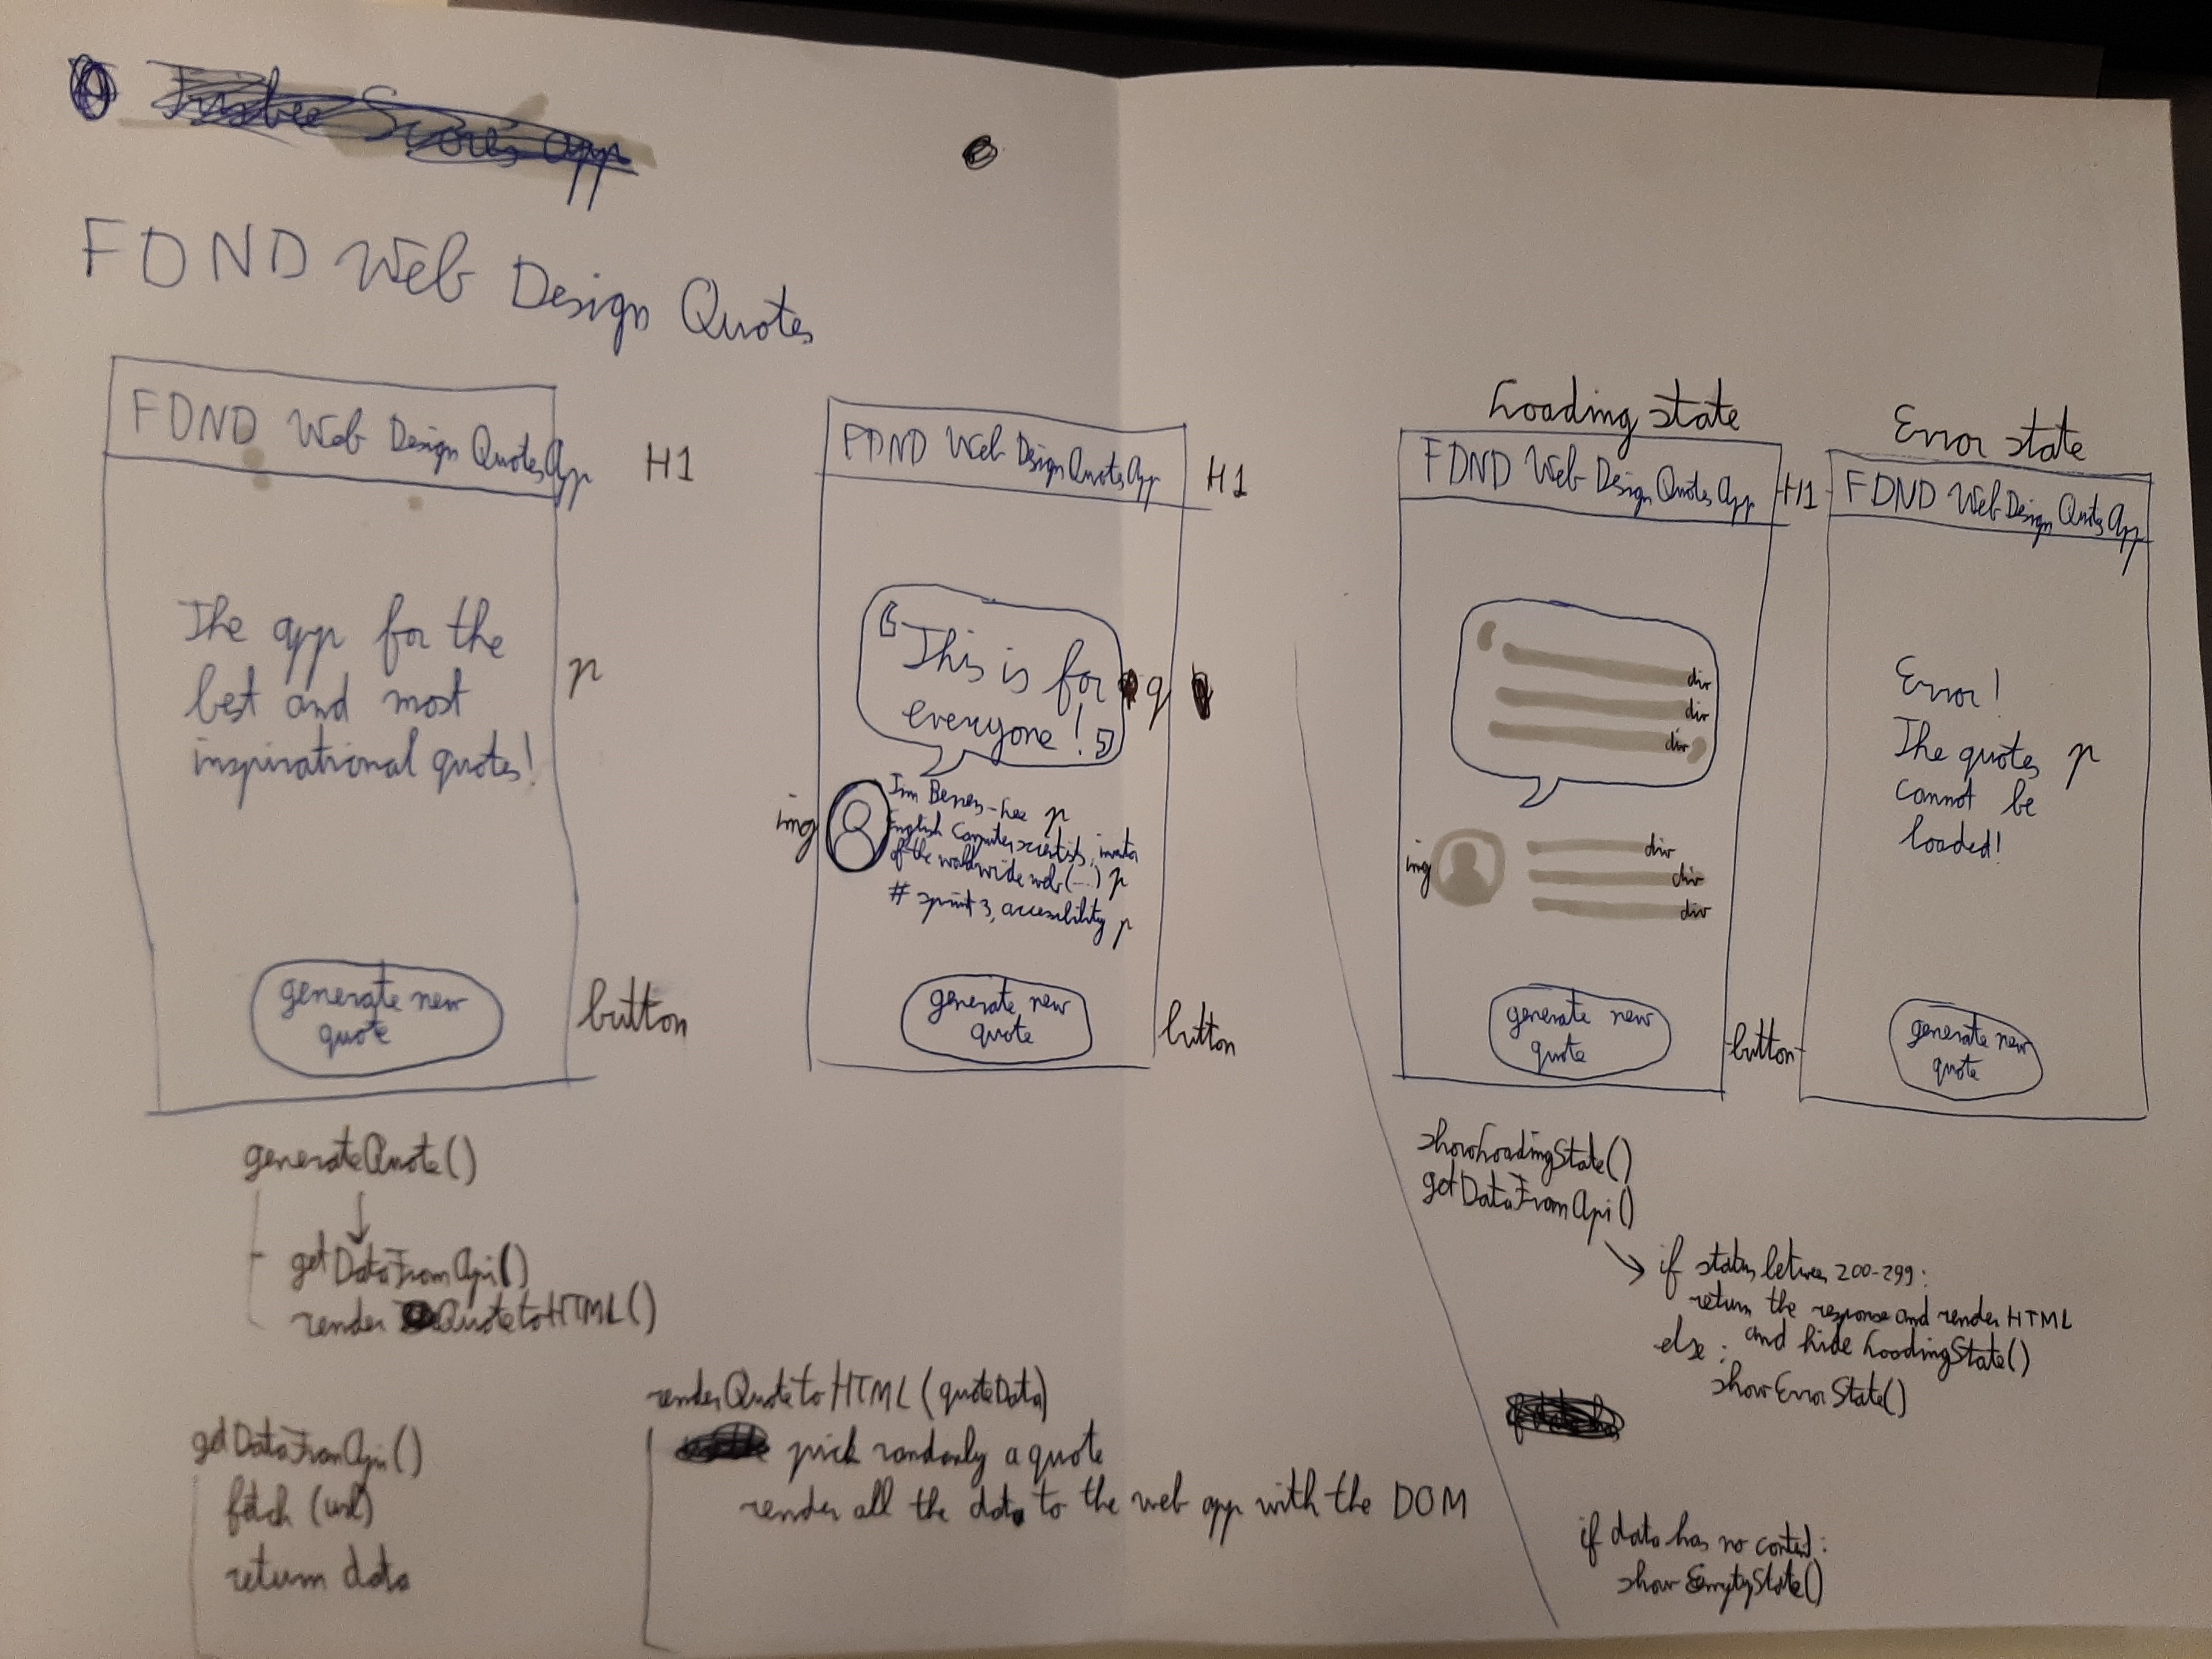 FDND Web Design Quotes
FDND Web Design Quotes App
H1
The app for the
best and most
inspirational quotes!
p
generate new
quote
button
FDND Web Design Quotes App
H1
"This is for
everyone!"
q
img
Tim Berners-Lee p
English Computer scientists,
of the worldwide web (...) p
# sprint 3, accessibility p
generate new
quote
button
Loading state
FDND Web Design Quotes App
H1
div
div
div
img
div
div
div
generate new
quote
button
Error state
FDND Web Design Quotes App
Error!
The quotes
cannot be
loaded!
p
generate new
quote
generateQuote()
↓
getDataFromApi()
render QuotetoHTML()
getDataFromApi()
fetch (url)
return data
renderQuotetoHTML (quoteData)
pick randomly a quote
render all the data to the web app with the DOM
showLoadingState()
getDataFromApi()
if status between 200-299:
return the response and render HTML
and hide LoadingState()
else:
showErrorState()
if data has no content:
show EmptyState()